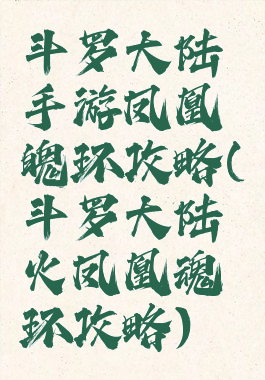 斗罗大陆
手游凤凰
魄环攻略(
斗罗大陆
火凤凰魂
环攻略)